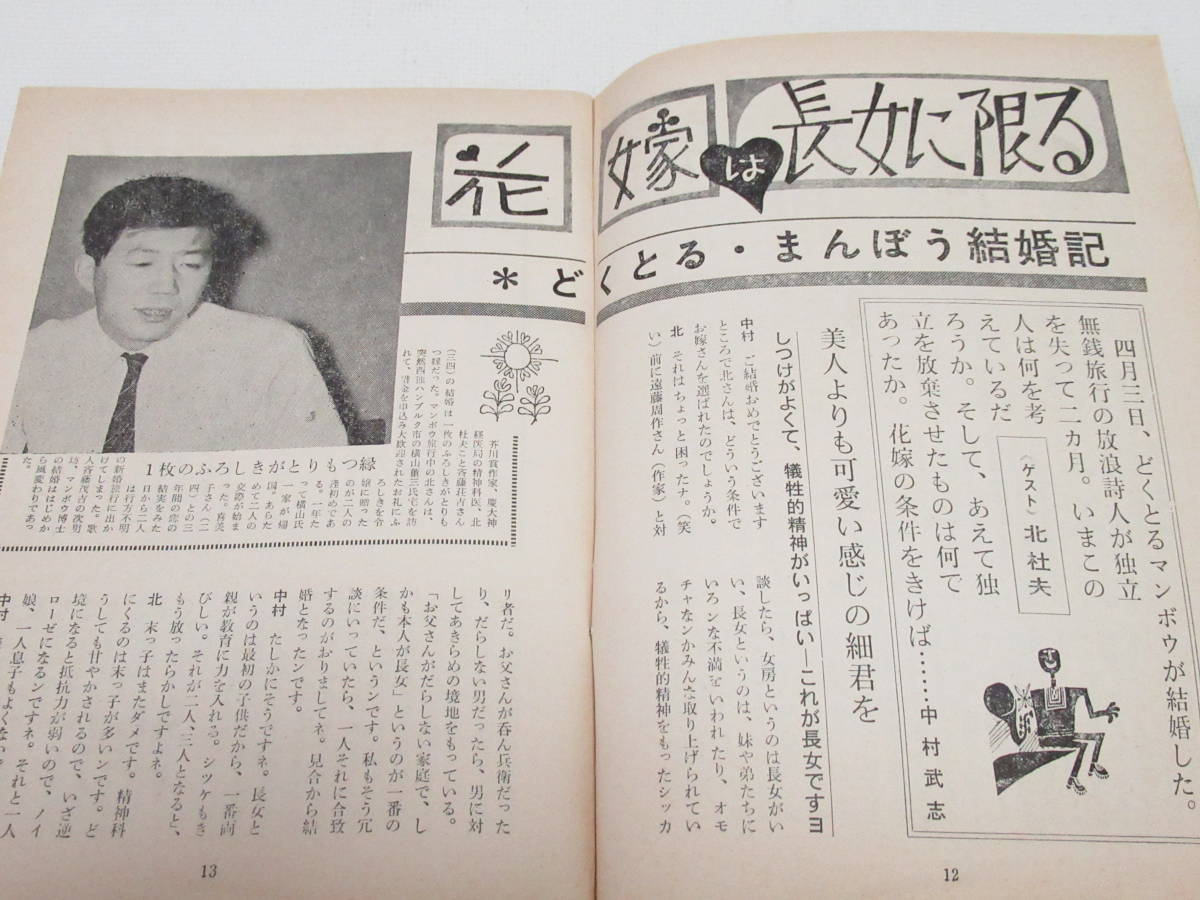 花嫁は長女に限る
＊どくとる・まんぼう結婚記
四月三日、どくとるマンボウが結婚した。
無銭旅行の放浪詩人が独立
を失って二カ月。いまこの
人は何を考
えているだ
ろうか。そして、あえて独
立を放棄させたものは何で
あったか。花嫁の条件をきけば……中村武志
（ゲスト）北杜夫
美人よりも可愛い感じの細君を
しつけがよくて、犠牲的精神がいっぱい――これが長女ですヨ
中村　ご結婚おめでとうございます
ところで北さんは、どういう条件で
お嫁さんを選ばれたのでしょうか。
北　それはちょっと困ったナ。（笑
い）前に遠藤周作さん（作家）と対
談したら、女房というのは長女がい
い、長女というのは、妹や弟たちに
いろンな不満をいわれたり、オモ
チャなンかみんな取り上げられてい
るから、犠牲的精神をもったシッカ
12
リ者だ。お父さんが呑ん兵衛だった
り、だらしない男だったら、男に対
してあきらめの境地をもっている。
「お父さんがだらしない家庭で、し
かも本人が長女」というのが一番の
条件だ、というンです。私もそう冗
談にいっていたら、一人それに合致
するのがおりましてネ。見合から結
婚となったンです。
中村　たしかにそうですネ。長女と
いうのは最初の子供だから、一番両
親が教育に力を入れる。シツケもき
びしい。それが二人、三人となると、
もう放ったらかしですよネ。
北　末っ子はまたダメです。精神科
にくるのは末っ子が多いンです。ど
うしても甘やかされるので、いざ逆
境になると抵抗力が弱いので、ノイ
ローゼになるンですネ。それと一人
娘、一人息子もよくない。
中村
1枚のふろしきがとりもつ縁
芥川賞作家、慶大神
経医局の精神科医、北
杜夫こと斉藤宗吉さん
（三四）の結婚は一枚のふろしきがとりも
つ縁だった。マンボウ旅行中の北さんは、
突然西独ハンブルク市の横山薫三氏宅を訪
れて、借金を申込み大歓迎されたお礼にふ
ろしきを令
嬢に贈った
のが二人の
逢初めであ
る。一年た
って横山氏
一家が帰
国。あらた
めて二人の
交際が始ま
った。喜美
子さん（二
四）との三
年間の恋の
結実をみた
日から二人
は行方不明
の新婚旅行に出か
けてしまった。歌
人斉藤茂吉の次男
坊、マンボウ博士
の結婚ははじめか
ら風変わりであっ
た。
13